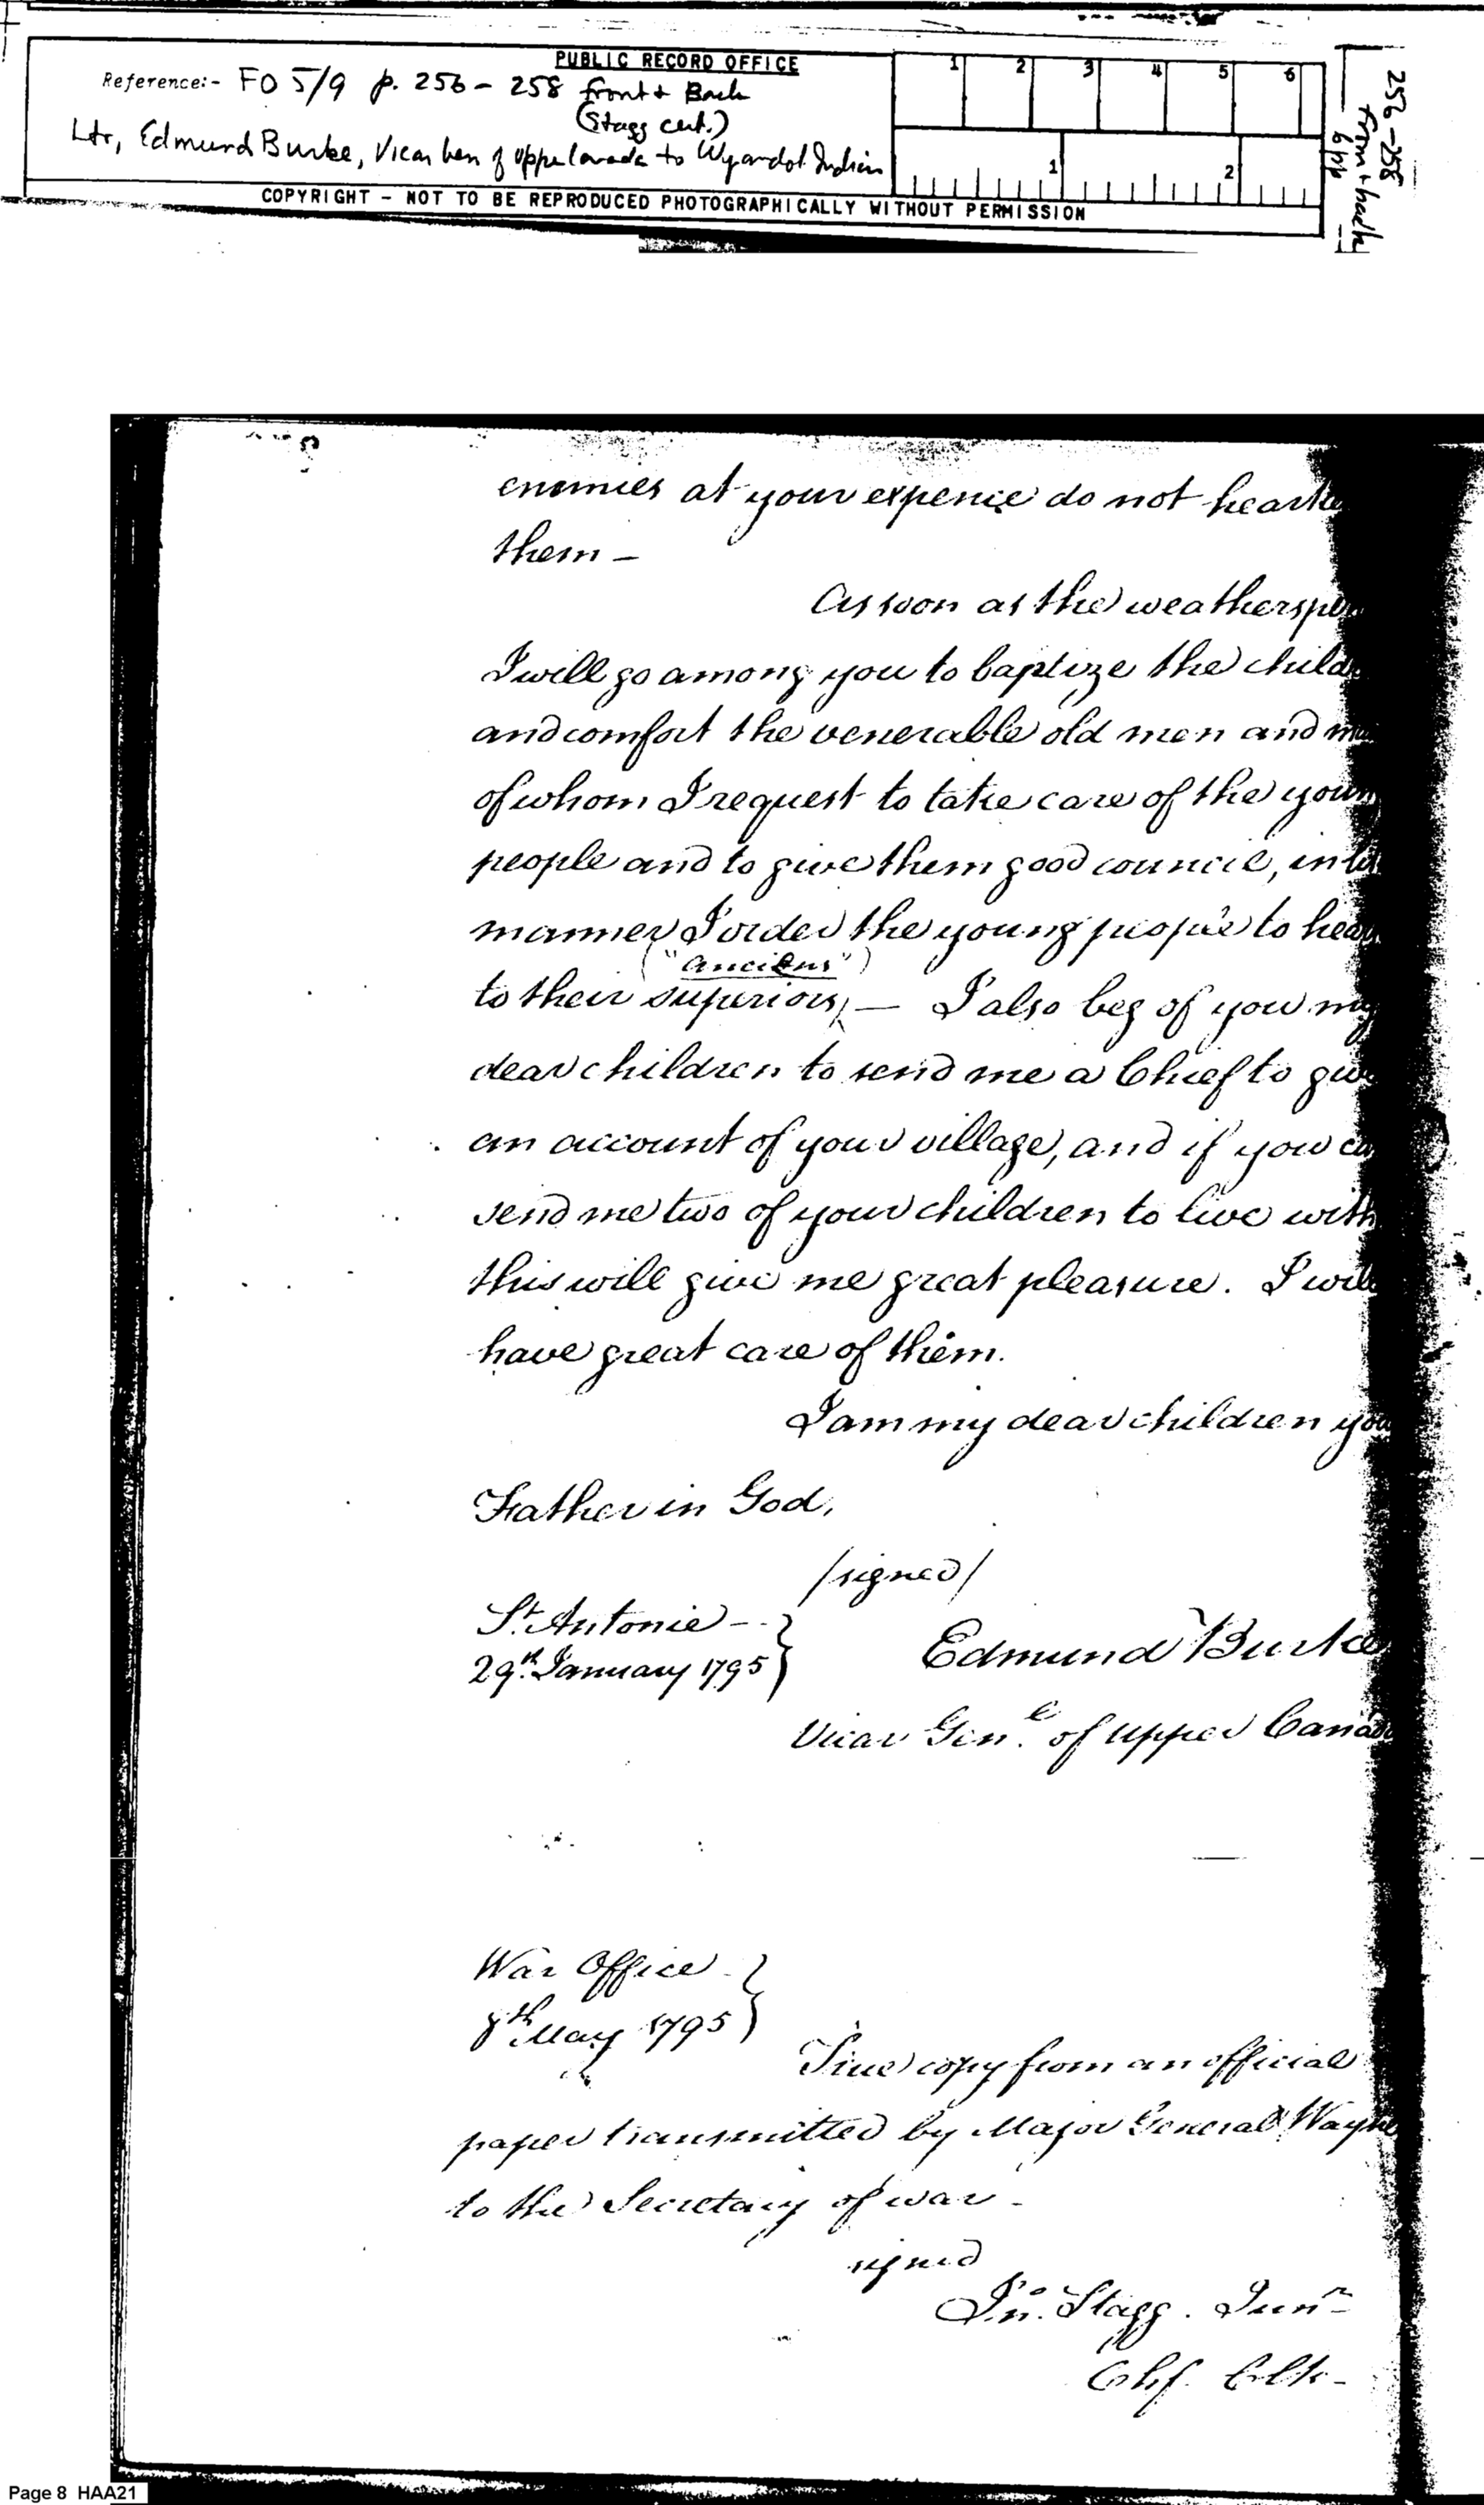 PUBLIC RECORD OFFICE
Reference:- FO 5/9 p. 256 - 258 front + Back
(Stagg cert.)
Ltr, Edmund Burke, Vicar Gen of Upper Canada to Wyandot Indian
COPYRIGHT - NOT TO BE REPRODUCED PHOTOGRAPHICALLY WITHOUT PERMISSION
1 2 3 4 5 6
1 2
256-258
front + back
6 pp
enemies at your expence do not hearke
them —
As soon as the weather
I will go among you to baptize the child
and comfort the venerable old men and
of whom I request to take care of the youn
people and to give them good council, in
manner I order the young people to hea
("anciens")
to their superiors, — I also beg of you my
dear children to send me a Chief to giv
an account of your village, and if you ca
send me two of your children to live with
this will give me great pleasure. I will
have great care of them.
I am my dear children you
Father in God,
/signed/
St. Antonie -
29th. January 1795
Edmund Burke
Vicar Genl. of Upper Canad
War Office
8th May 1795
True copy from an official
paper transmitted by Major General Wayne
to the Secretary of war -
signed
Jno. Stagg. Junr
Chf. Clk -
Page 8 HAA21